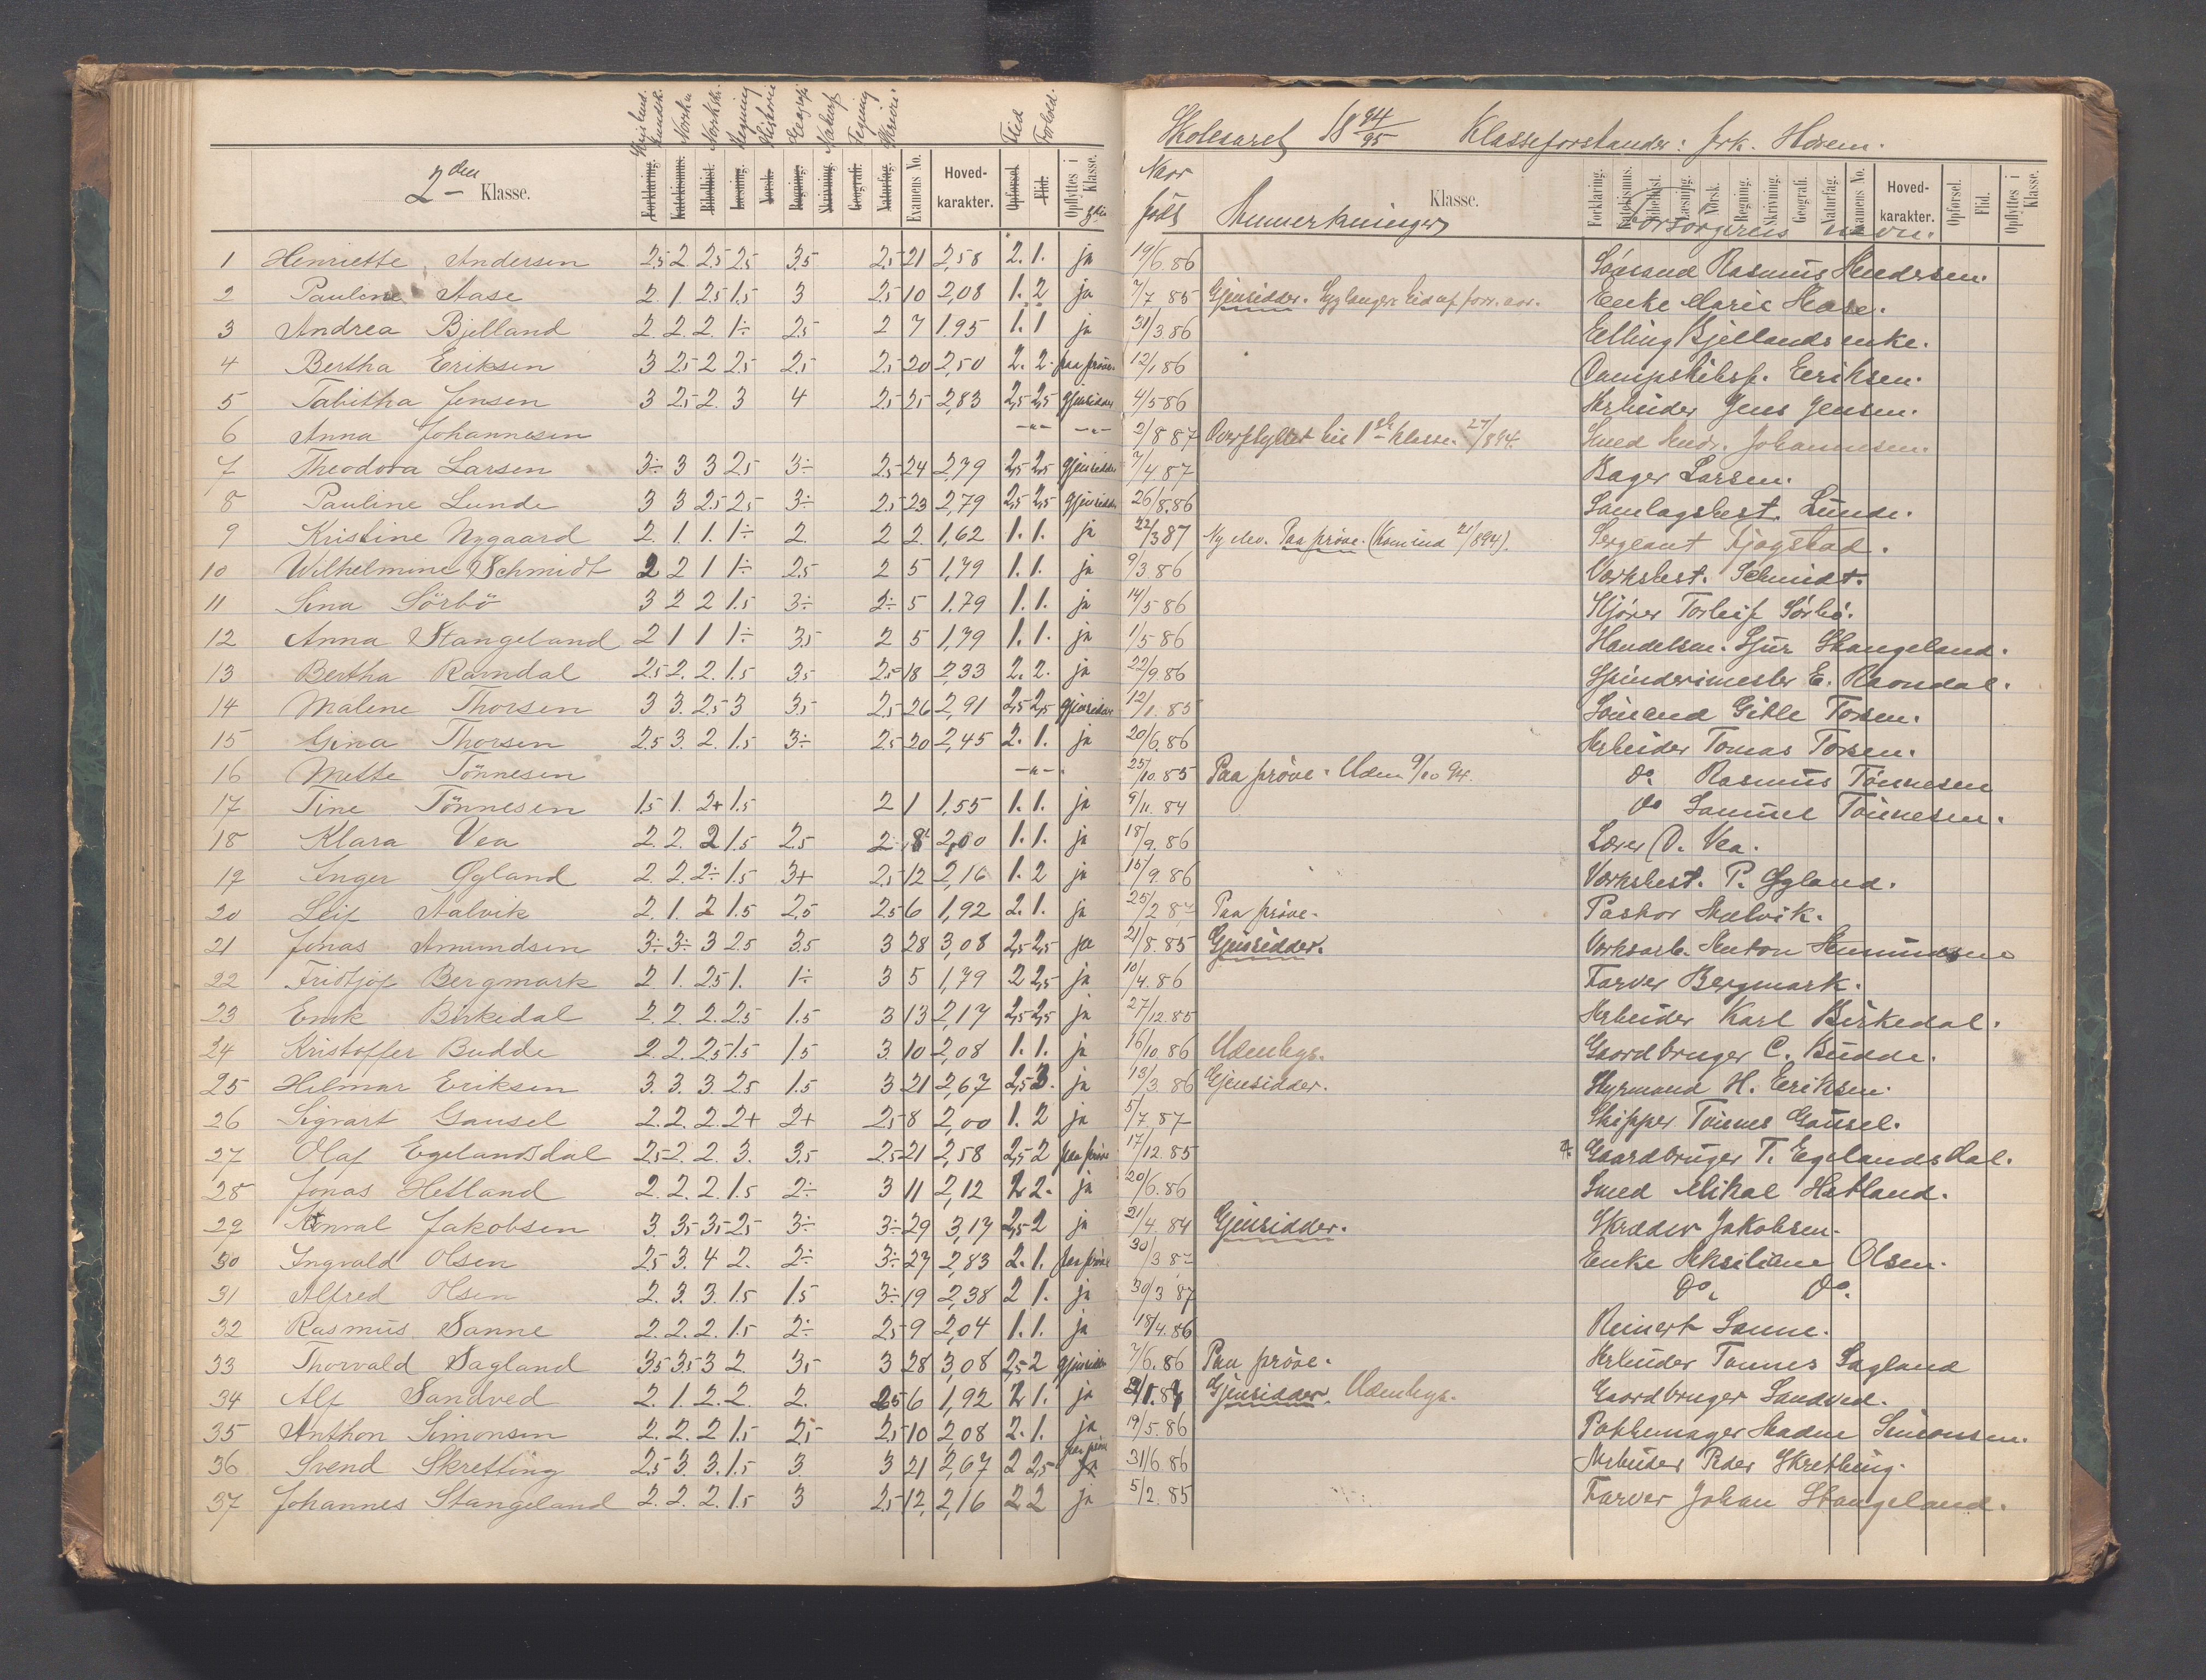 Skoleaaret 18 94/95 Klasseforstander: frk. Horem.
2den Klasse.
Kristend. kundsk. Norsk Norsk sk. Regning Historie Geografi Naturf. Tegning Skrivn. Flid Forhold.
Forklaring. Katekismus. Bibelhist. Læsning. Norsk. Regning. Skrivning. Geografi. Naturfag. Examens No. Hoved-karakter. Opførsel. Flid. Opflyttes i Klasse.
Naar født Anmerkninger Klasse. Forsørgerens navn.
Forklaring. Katekismus. Bibelhist. Læsning. Norsk. Regning. Skrivning. Geografi. Naturfag. Examens No. Hoved-karakter. Opførsel. Flid. Opflyttes i Klasse.
1 Henriette Andersen 2.5 2 2.5 2.5 3.5 2.5 21 2,58 2. 1. ja 19/6.86 Sømand Rasmus Andersen.
2 Pauline Aase 2. 1 2.5 1.5 3 2.5 10 2,08 1. 2 ja 7/7 85 Gjensidder. Syg længere tid af forr. aar. Enke Marie Aase.
3 Andrea Bjelland 2. 2. 2 1÷ 2.5 2 7 1.95 1. 1 ja 31/3.86 Elling Bjellands enke.
4 Bertha Eriksen 3 2.5 2 2.5 2.5 2.5 20 2,50 2. 2. paa prøve. 12/1 86 Dampskibsf. Eriksen.
5 Tabitha Jensen 3 2.5 2. 3 4 2.5 25 2,83 2,5 2,5 gjensidder 4/5 86 Arbeider Jens Jensen.
6 Anna Johannesen -"- -"- 2/8 87 Overflyttet til 1ste klasse 27/8 94. Smed Andr. Johannesen.
7 Theodora Larsen 3÷ 3 3 2.5 3÷ 2.5 24 2,79 2,5 2,5 gjensidder 7/4 87 Bager Larsen.
8 Pauline Lunde 3 3 2.5 2.5 3÷ 2.5 23 2,79 2,5 2,5 gjensidder 26/8.86 Samlagsbest. Lunde.
9 Kristine Nygaard 2. 1 1. 1÷ 2. 2 2 1,62 1. 1. ja 22/3 87 Ny elev. Paa prøve. (Kom ind 21/8 94). Sergeant Tjøgstad.
10 Wilhelmine Schmidt 2 2 1 1÷ 2.5 2 5 1,79 1. 1. ja 9/3 86 Værksbest. Schmidt.
11 Sina Sörbö 3 2 2 1.5 3÷ 2÷ 5 1.79 1. 1. ja 14/5 86 Kjører Torleif Sørbø.
12 Anna Stangeland 2 1 1 1÷ 3.5 2 5 1,79 1. 1. ja 1/5 86 Handelsm. Sjur Stangeland.
13 Bertha Ramdal 2.5 2. 2. 1.5 3.5 2.5 18 2,33 2. 2. ja 22/9 86 Spinderimester E. Ravndal.
14 Malene Thorsen 3 3. 2.5 3 3.5 2.5 26 2,91 2,5 2,5 gjensidder 12/1. 85 Sømand Gitle Torsen.
15 Gina Thorsen 2.5 3. 2. 1.5 3÷ 2.5 20 2,45 2. 1. ja 20/6.86 Arbeider Tomas Torsen.
16 Mette Tönnesen -"- 25/10.85 Paa prøve. Udm. 9/10 94. do. Rasmus Tønnesen
17 Tine Tönnesen 1.5 1. 2+ 1.5 2 1 1.55 1. 1. ja 9/11. 84 do Samuel Tønnesen.
18 Klara Vea 2. 2. 2 1.5 2.5 2. 8 2,00 1. 1. ja 18/9. 86 Lærer O. Vea.
19 Inger Øgland 2. 2. 2÷ 1.5 3+ 2.5 12 2,16 1. 2 ja 15/9. 86 Værksbest. P. Øgland.
20 Leif Aalvik 2. 1. 2 1.5 2.5 2.5 6 1,92 2. 1. ja 25/2 87 Paa prøve. Pastor Aalvik.
21 Jonas Amundsen 3÷ 3÷ 3 2.5 3.5 3 28 3,08 2,5 2,5 ja 21/8.85 Gjensidder. Værksarb. Anton Amundsen
22 Fridtjof Bergmark 2 1. 2.5 1. 1÷ 3 5 1,79 2 2,5 ja 10/4. 86 Farver Bergmark.
23 Enok Birkedal 2. 2. 2. 2.5 1.5 3 13 2,17 2,5 2,5 ja 27/12.85 Arbeider Karl Birkedal.
24 Kristoffer Budde 2. 2. 2.5 1.5 1.5 3. 10 2,08 1. 1. ja 16/10.86 Udenbys. Gaardbruger C. Budde.
25 Hilmar Eriksen 3. 3. 3. 2.5 1.5 3 21 2,67 2,5 3. ja 13/3.86 Gjensidder. Styrmand H. Eriksen.
26 Sigvart Gausel 2. 2. 2. 2+ 2+ 2.5 8 2,00 1. 2 ja 5/7. 87 Skipper Tønnes Gausel.
27 Olaf Egelandsdal 2.5 2. 2. 3. 3.5 2.5 21 2,58 2,5 2 paa prøve 17/12.85 Gaardbruger T. Egelandsdal.
28 Jonas Hetland 2. 2. 2. 1.5 2÷ 3 11 2,12 2 2. ja 20/6.86 Smed Mikal Hetland.
29 Konval Jakobsen 3. 3.5 3.5 2.5 3÷ 3÷ 29 3,17 2,5 2 ja 21/4. 84 Gjensidder. Skrædder Jakobsen.
30 Ingvald Olsen 2.5 3. 4 2. 2÷ 3÷ 27 2,83 2. 1. paa prøve 30/3 87 Enke Aksiliane Olsen.
31 Alfred Olsen 2. 3. 3. 1.5 1.5 3÷ 19 2,38 2 1. ja 30/3 87 do. do.
32 Rasmus Sanne 2. 2. 2. 1.5 2÷ 2.5 9 2,04 1. 1. ja 18/4.86 Reinert Sanne.
33 Thorvald Sagland 3.5 3.5 3 2. 3.5 3 28 3,08 2,5 2 gjensidder 7/6.86 Paa prøve. Arbeider Tønnes Sagland
34 Alf Sandved 2. 1. 2. 2. 2. 2.5 6 1,92 2 1. ja Gjensidder. Udenbys. Gaardbruger Sandved.
35 Anthon Simonsen 2. 2. 2 1.5 2.5 2.5 10 2,08 2. 1. ja 19/5.86 Pakhusager Simonsen.
36 Svend Skretting 2.5 3 3. 1.5 3 3 21 2,67 2 2,5 paa prøve ja 31/6 86 Arbeider Peder Skretting.
37 Johannes Stangeland 2. 2. 2. 1.5 3 2.5 12 2,16 2 2 ja 5/2. 85 Farver Johan Stangeland.